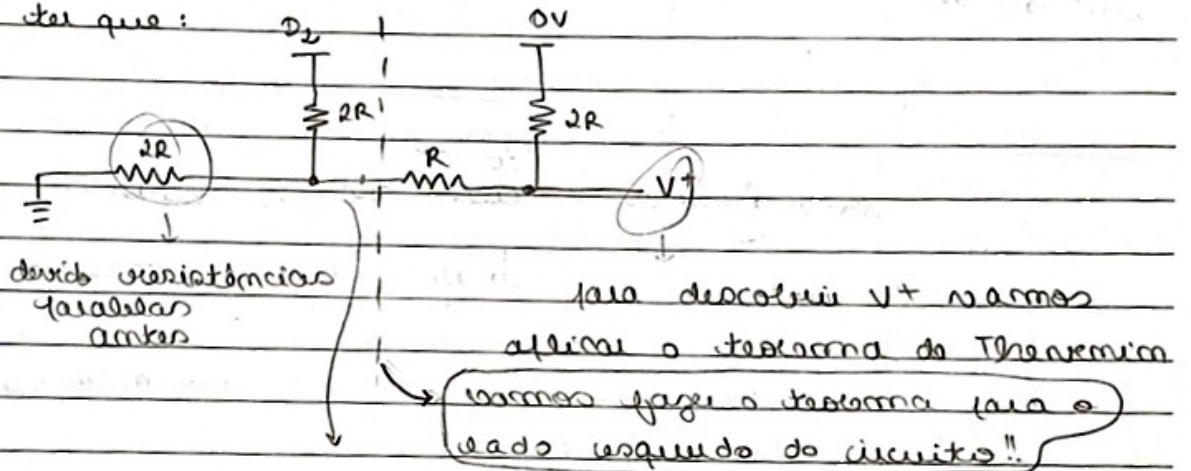 ter que:
D₂
0V
2R
2R
2R
R
V+
devido resistências
paralelas
antes
para descobrir V+ vamos
aplicar o teorema de Thevenin
vamos fazer o teorema para o
lado esquerdo do circuito!!